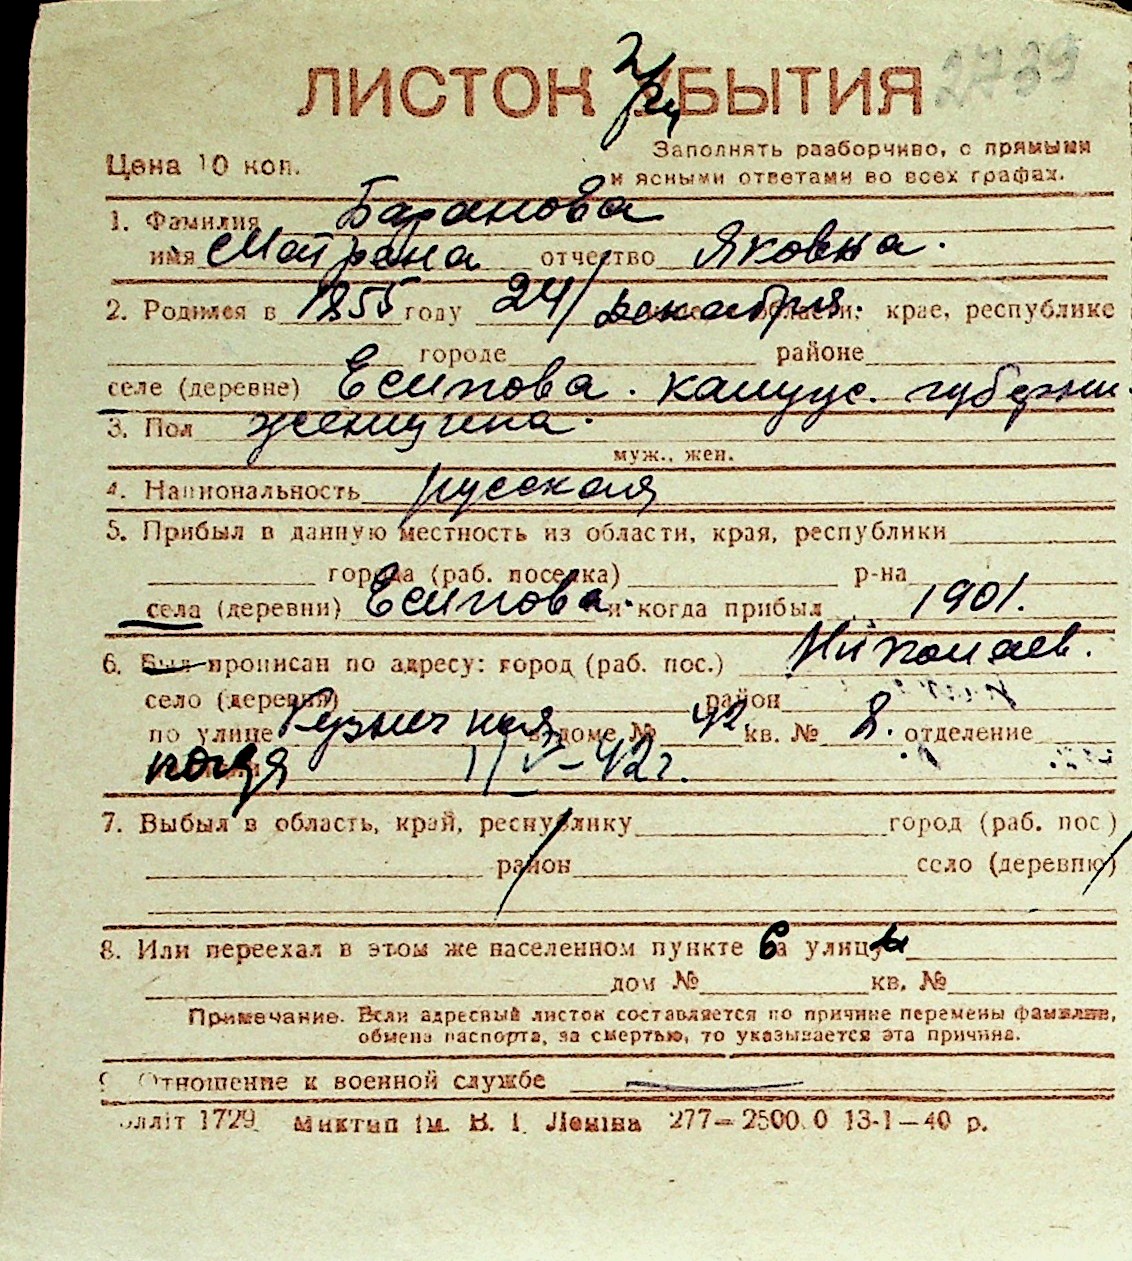 ЛИСТОК УБЫТИЯ 2739
Цена 10 коп.
Заполнять разборчиво, с прямыми
и ясными ответами во всех графах.
1. Фамилия Баранова
имя Матрёна отчество Яковна.
2. Родился в 1855 году 24/ декабря. области, крае, республике
городе районе
селе (деревне) Есипова. калужс. губерни.
3. Пол женщина.
муж., жен.
4. Национальность русская
5. Прибыл в данную местность из области, края, республики
города (раб. поселка) р-на
села (деревни) Есипова и когда прибыл 1901.
6. Был прописан по адресу: город (раб. пос.) Николаев.
село (деревня) район
по улице Кузнечная в доме № 42 кв. № 8. отделение
когда 1/V-42г.
7. Выбыл в область, край, республику город (раб. пос)
район село (деревню)
8. Или переехал в этом же населенном пункте улицы
дом № кв. №
Примечание. Если адресный листок составляется по причине перемены фамилии,
обмена паспорта, за смертью, то указывается эта причина.
9. Отношение к военной службе
олліт 1729. Миктип ім. В. І. Леніна 277—2500.0 13-1—40 р.